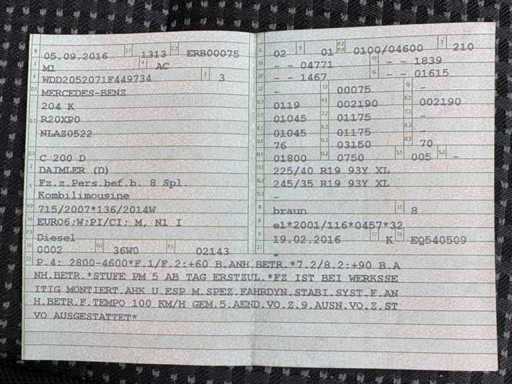 05.09.2016 1313 ERB00075
M1 AC
WDD2052071F449734 3
MERCEDES-BENZ
204 K
R20XP0
NLAZ0522
C 200 D
DAIMLER (D)
Fz.z.Pers.bef.b. 8 Spl.
Kombilimousine
715/2007*136/2014W
EURO6;W:PI/CI: M, N1 I
Diesel
0002 36W0 02143
02 01 0100/04600 210
- - 04771 - - 1839
- - 1467 - - 01615
- 00075 -
0119 002190 002190
01045 01175 -
01045 01175 -
76 03150 70
01800 0750 005 -
225/40 R19 93Y XL
245/35 R19 93Y XL
-
braun 8
e1*2001/116*0457*32
19.02.2016 K EQ540509
-
P.4: 2800-4600*F.1/F.2:+60 B.ANH.BETR.*7.2/8.2:+90 B.A
NH.BETR.*STUFE PM 5 AB TAG ERSTZUL.*FZ IST BEI WERKSSE
ITIG MONTIERT.AHK U.ESP M.SPEZ.FAHRDYN.STABI.SYST.F.AN
H.BETR.F.TEMPO 100 KM/H GEM.5.AEND.VO.Z.9.AUSN.VO.Z.ST
VO AUSGESTATTET*